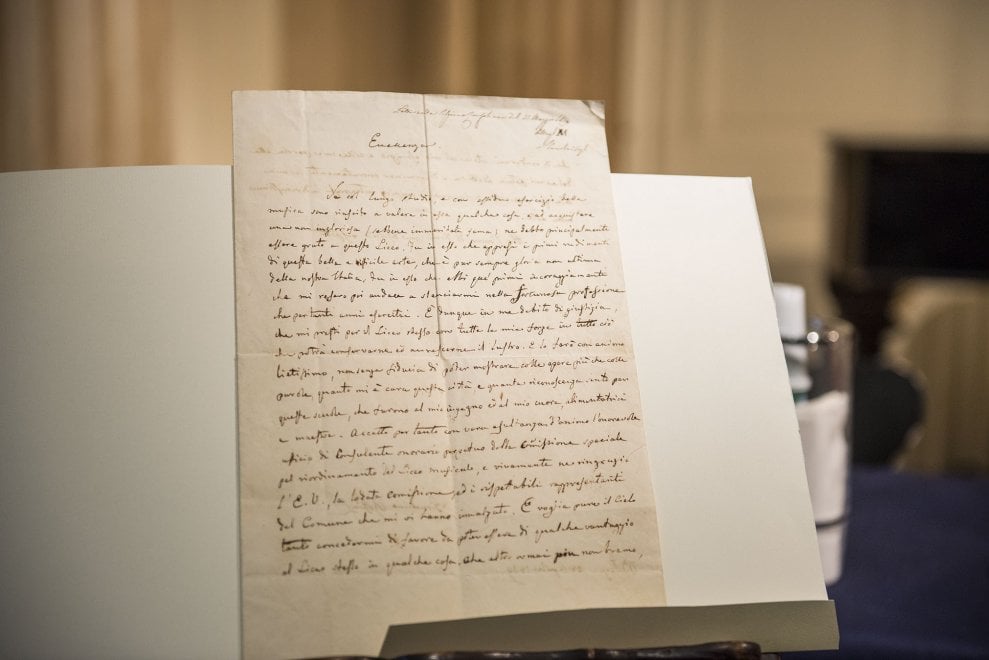 Eccellenza.
Se col lungo studio, e con assiduo esercizio della
musica sono riuscito a valere in essa qualche cosa, e ad acquistare
una non ingloriosa (sebbene immeritata fama; ne debbo principalmente
essere grato a questo Liceo. Fu in esso che appresi i primi rudimenti
di questa bella e difficile arte, che è pur sempre gloria non ultima
della nostra Italia, fu in esso che ebbi que' primi incoraggiamenti
che mi resero poi audace a slanciarmi nella fortunosa professione
che per tanti anni esercitai. È dunque in me debito di giustizia,
che mi presti per il Liceo stesso con tutte le mie forze in tutto ciò
che potrà conservarne ed accrescerne il lustro. E lo farò con animo
lietissimo, non senza fiducia di poter mostrare colle opere più che colle
parole, quanto mi è cara questa città e quanta riconoscenza sento per
queste scuole, che furono al mio ingegno ed al mio cuore, alimentatrici
e maestre. Accetto per tanto con vera esultanza d'animo l'onorevole
ufficio di Consulente onorario perpetuo della Comissione speciale
pel riordinamento del Liceo musicale, e vivamente ne ringrazio
l'E.V., la lodata comissione, ed i rispettabili rappresentanti
del Comune che mi vi hanno innalzato. E voglia pure il Cielo
tanto concedermi di favore da poter essere di qualche vantaggio
al Liceo stesso in qualche cosa, che altro ormai più non bramo,